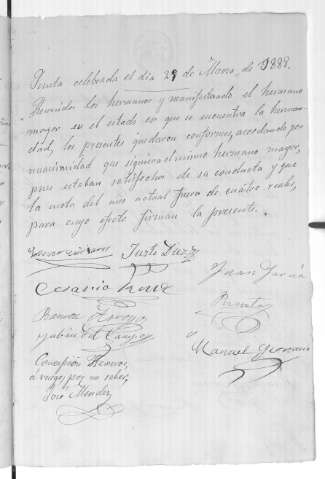 Junta celebrada el dia 29 de Marzo de 1888.
Reunidos los hermanos y manifestando el hermano
mayor en el estado en que se encuentra la herman
dad, los presentes quedaron conformes, acordando por
unanimidad que siguiera el mismo hermano mayor,
pues estaban satisfechos de su conducta y que
la cuota del año actual fuera de cuatro reales,
para cuyo efecto firman la presente.
Justo Diez
Juan Garcia
Cesareo
Benito
Ramon
Gabino del Campo
Manuel
Concepción
á ruego por no saber,
José Mendez